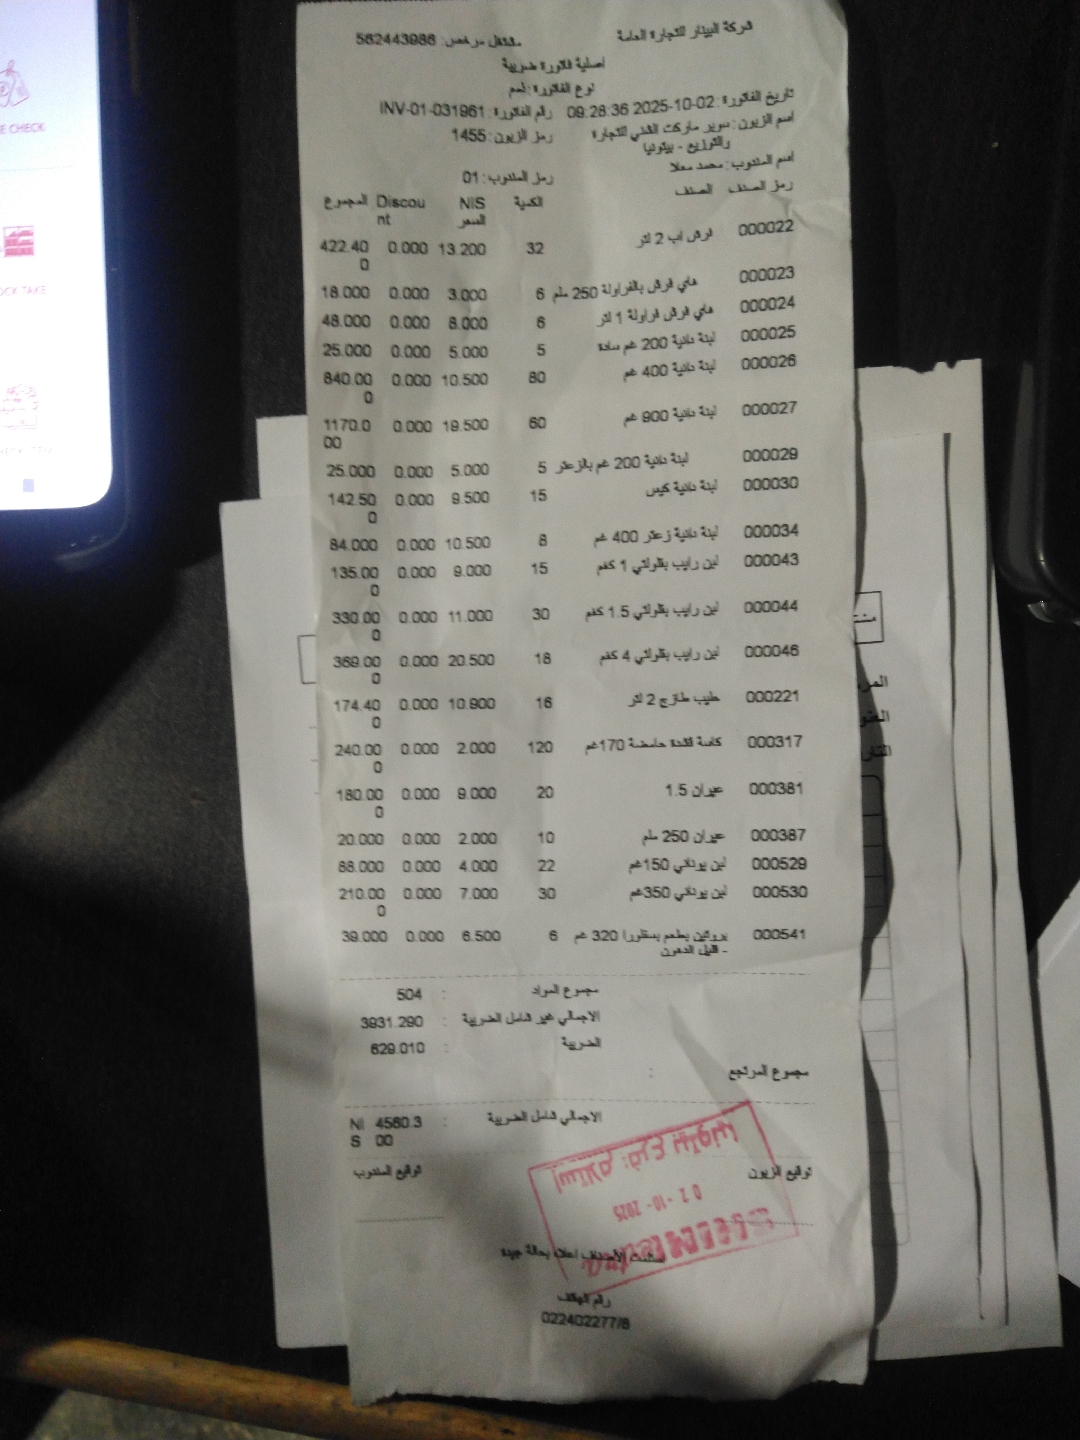 شركة البينار للتجارة العامة مشتغل مرخص: 562443986
اصلية فاتورة ضريبية
نوع الفاتورة: ذمم
تاريخ الفاتورة: 2025-10-02 09:28:36 رقم الفاتورة: INV-01-031961
اسم الزبون: سوبر ماركت الشني للتجارة والتوزيع - بيتونيا رمز الزبون: 1455
اسم المندوب: محمد معلا رمز المندوب: 01
رمز الصنف الصنف الكمية NIS السعر Discount المجموع
000022 2 لتر 32 13.200 0.000 422.400
000023 بالفراولة 250 ملم 6 3.000 0.000 18.000
000024 فراولة 1 لتر 6 8.000 0.000 48.000
000025 لبنة دانية 200 غم سادة 5 5.000 0.000 25.000
000026 لبنة دانية 400 غم 80 10.500 0.000 840.000
000027 لبنة دانية 900 غم 60 19.500 0.000 1170.000
000029 لبنة دانية 200 غم بالزعتر 5 5.000 0.000 25.000
000030 لبنة دانية كيس 15 9.500 0.000 142.500
000034 لبنة دانية زعتر 400 غم 8 10.500 0.000 84.000
000043 لبن رايب بقلولتي 1 كغم 15 9.000 0.000 135.000
000044 لبن رايب بقلولتي 1.5 كغم 30 11.000 0.000 330.000
000046 لبن رايب بقلولتي 4 كغم 18 20.500 0.000 369.000
000221 حليب طازج 2 لتر 16 10.900 0.000 174.400
000317 كاسة قشدة حامضة 170غم 120 2.000 0.000 240.000
000381 عيران 1.5 20 9.000 0.000 180.000
000387 عيران 250 ملم 10 2.000 0.000 20.000
000529 لبن يوناني 150غم 22 4.000 0.000 88.000
000530 لبن يوناني 350غم 30 7.000 0.000 210.000
000541 بروتين بطعم 320 غم - قليل الدهون 6 6.500 0.000 39.000
مجموع المواد : 504
الاجمالي غير شامل الضريبة : 3931.290
الضريبة : 629.010
مجموع المرتجع :
الاجمالي شامل الضريبة : 4560.300 NIS
توقيع الزبون توقيع المندوب
استلام: فرع بيتونيا
02-10-2025
استلمت الأصناف اعلاه بحالة جيدة
رقم الهاتف
022402277/8
E CHECK
OCK TAKE